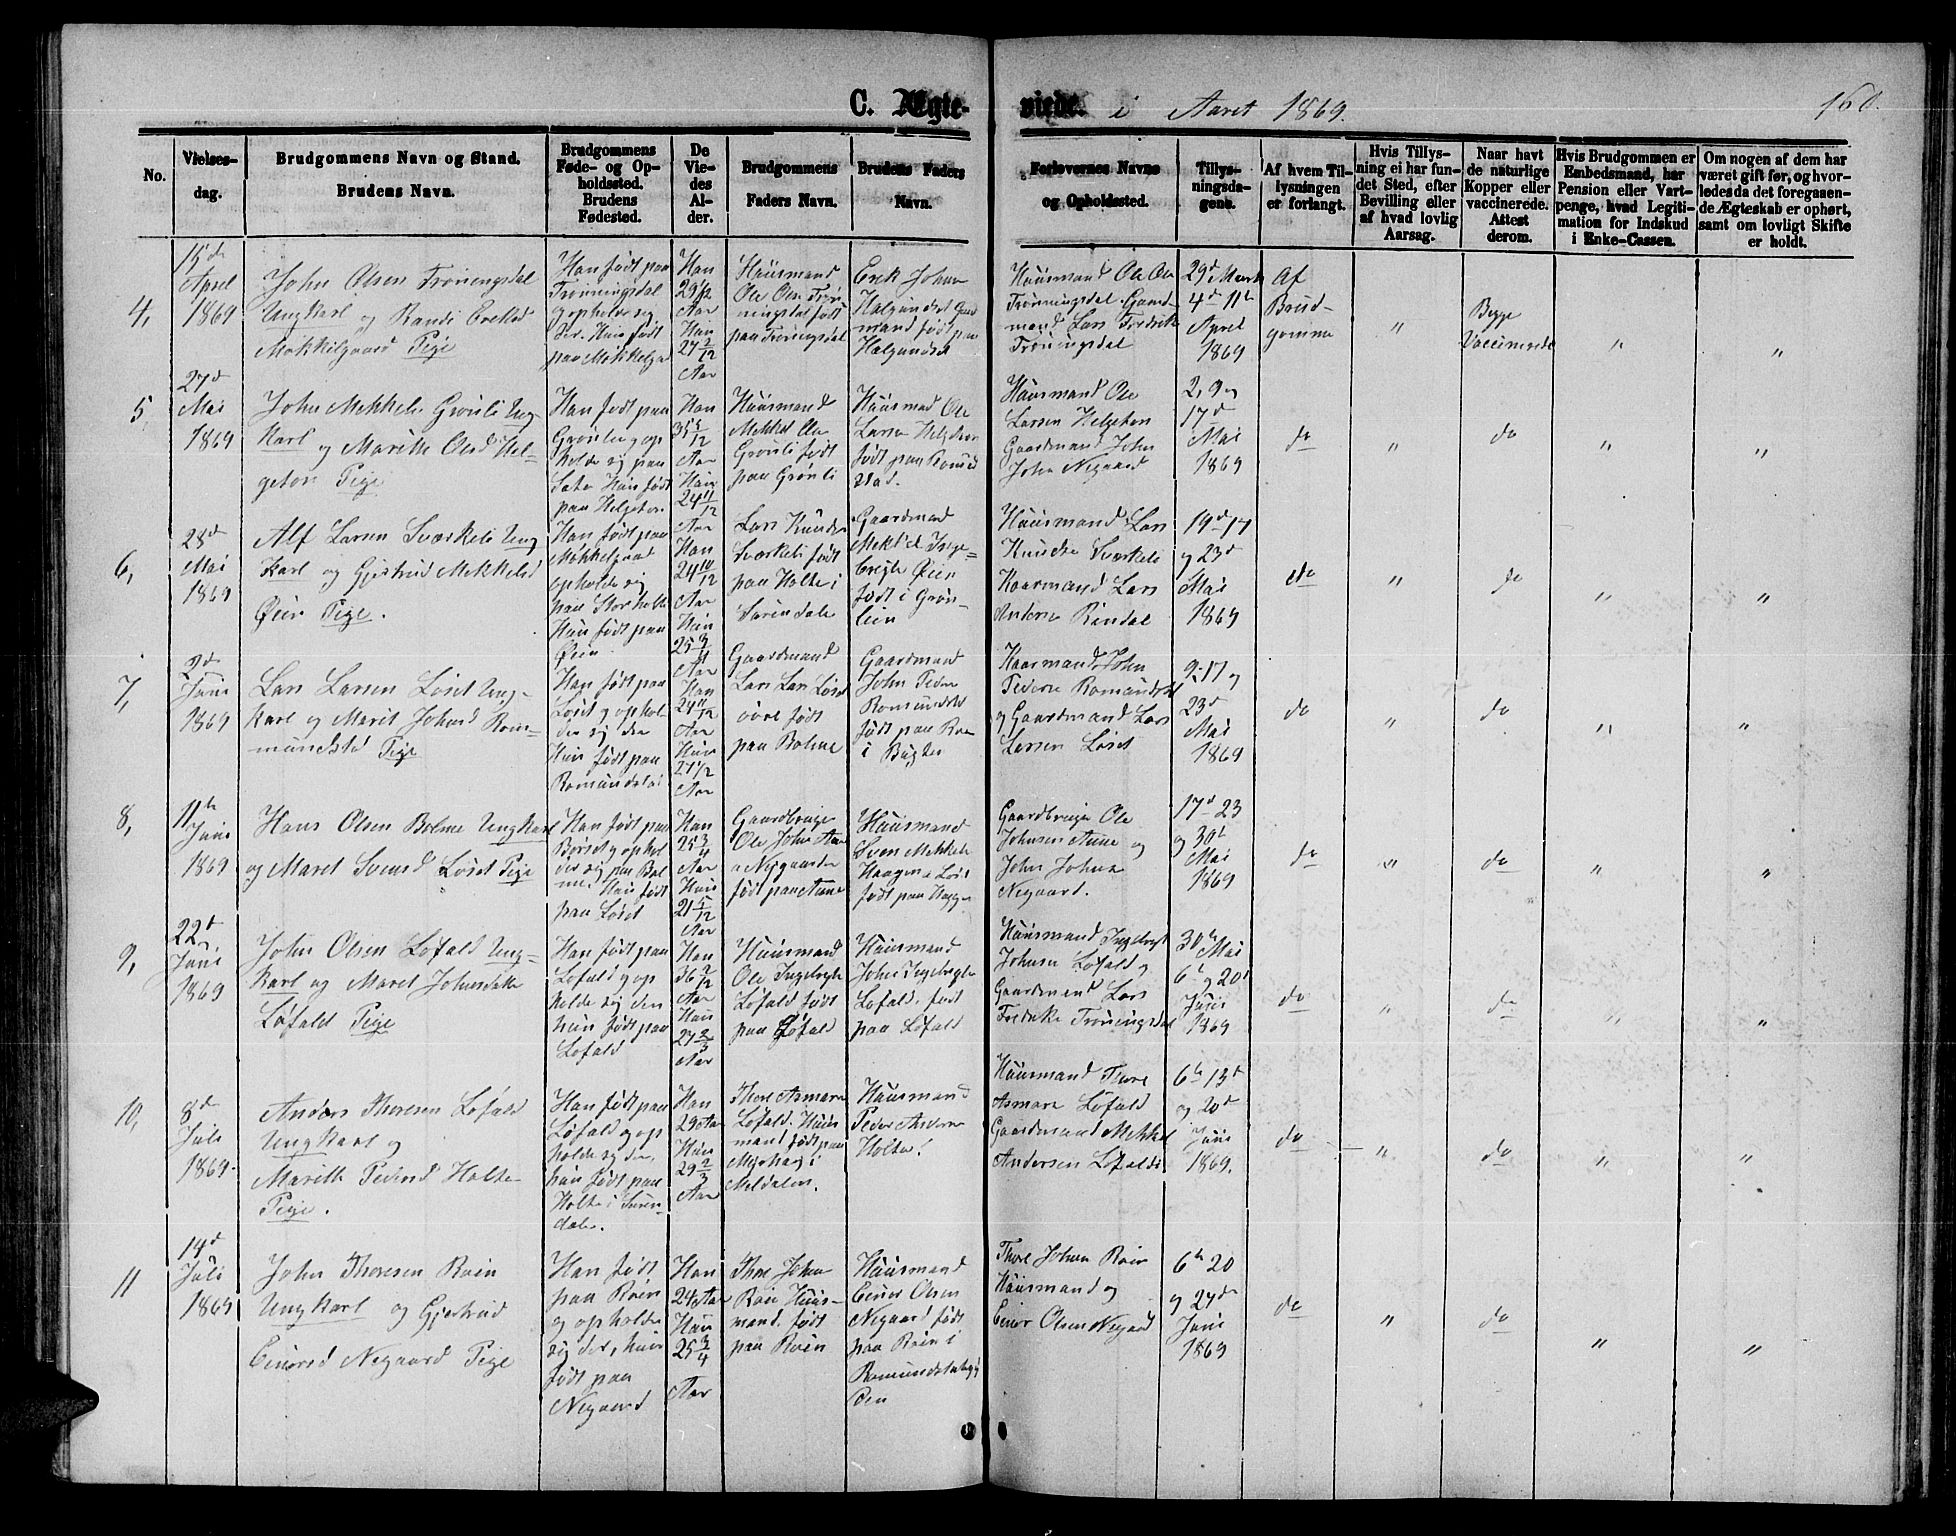 C. Ægte-
viede. i Aaret 1869.
160.
No.
Vielses-
dag.
Brudgommens Navn og Stand.
Brudens Navn.
Brudgommens
Føde- og Op-
holdssted.
Brudens
Fødested.
De
Vie-
des
Al-
der.
Brudgommens
Faders Navn.
Brudens Faders
Navn.
Forlovernes Navne
og Opholdssted.
Tillys-
ningsda-
gene.
Af hvem Til-
lysningen
er forlangt.
Hvis Tillys-
ning ei har fun-
det Sted, efter
Bevilling eller
af hvad lovlig
Aarsag.
Naar havt
de naturlige
Kopper eller
vaccinerede.
Attest
derom.
Hvis Brudgommen er
Embedsmand, har
Pension eller Vart-
penge, hvad Legiti-
mation for Indskud
i Enke-Cassen.
Om nogen af dem har
været gift før, og hvor-
ledes da det foregaaen-
de Ægteskab er ophørt,
samt om lovligt Skifte
er holdt.
4,
15de
April
1869
John Olsen Trøningsdal
Ungkarl og Randi Ereksd
Mokkilgaard Pige
Han født paa
Trøningsdal
og opholder sig
der. Hun født
paa Mokkelgrd
Han
29 1/12
Aar
Hun
27 2/12
Aar
Huusmand
Ole Olse Trøn-
ningsdal født
paa Trøningsdal
Erek Johnse
Halgundset Gaard
mand født paa
Halgundset
Huusmand Ole Ols
Trøningsdal Gaard-
mand Lars Fredrik
Trøningsdal
29d Marts
4d 11te
Apret
1869
Af
Brud-
gomme
"
Begge
Vaccinerede
"
"
5,
27d
Mai
1869
John Mekkels Grønli Ung-
karl og Marith Olsd Hel-
geton Pige
Han født paa
Grønli og op
holde sig paa
Sæter Hun født
paa Helgeton
Han
35 5/12
Aar
Hun
24 11/12
Aar
Huusmand
Mekkel Ols
Grønli født
paa Grønli
Huusmand Ole
Larsen Helgeton
født paa Romund
stad.
Huusmand Ole
Larsen Helgeton
Gaardmand John
John Negaard
2, 9 og
17d
Mai
1869
do
"
do
"
"
6,
28d
Mai
1869
Alf Larsen Sværkeli Ung
karl og Gjertrud Mekkelsd
Øien Pige.
Han født paa
Mokkelgaard
opholde sig
paa Storholte
Hun født paa
Øien
Han
24 10/12
Aar
Hun
Aar
Lars Knudse
Sværkeli født
paa Holte i
Surendale
Gaardmand
Mekkel Inge-
brigts Øien
født i Grøn-
lien
Huusmand Lars
Knudse Sværkeli
Kaarmand Lars
Anderse Rindal
19d 17
og 23d
Mai
1869
do
"
do
"
"
7,
2d
Juni
1869
Lars Larsen Løset Ung-
karl og Marit Johnsd Rom-
mundstd Pige
Han født paa
Løset og ophol-
der sig der
Hun født paa
Romundstad
Han
24 11/12
Aar
Hun
21 1/2
Aar
Gaardmand
Lars Lars Løset
øvre født
paa Bolme
Gaardmand
John Peder
Romundstd
født paa Roen
i Bugten
Kaarmand John
Pederse Romundstd
og Gaardmand Lars
Larsen Løset
9-17 og
23d
Mai
1869
do
"
do
"
"
8,
11te
Juni
1869
Hans Olsen Bolme Ungkarl
og Maret Svensd Løset Pige
Han født paa
Børset og ophol
der sig paa Bol
me. Hun født
paa Løset
Han
25 3/4
Aar
Hun
21 5/12
Aar
Gaardbruger
Ole Johns Aune
Negaarden
født paa Aune
Huusmand
Sven Mekkels
Haagen Løset
født paa Haagen
Gaardbruger Ole
Johnsen Aune og
John Johnse
Negaard.
17d 23
og 30te
Mai
1869
do
"
do
"
"
9,
22d
Juni
1869
John Olsen Løfald Ung-
karl og Maret Johnsdtr
Løfald Pige
Han født paa
Løfald og op
holde sig der
hun født paa
Løfald
Han
36 2/12
Aar
Hun
27 2/3
Aar
Huusmand
Ole Ingebregts
Løfald født
paa Løfald
Huusmand
John Ingebregts
Løfald. født
paa Løfald
Huusmand Ingebregt
Johnse Løfald og
Gaardmand Lars
Fredrikse Trøningsdal
30te Mai
6te og 20d
Juni
1869
do
"
do
"
"
10,
8d
Juli
1869.
Anders Thoresen Løfald
Ungkarl og
Marith Pedersd Holte
Pige.
Han født paa
Løfald og op
holde sig der,
hun født paa
Holte i Suren-
dalen.
Han
29 Aar
Hun
29 2/3
Aar
Thore Asmunse
Løfald. Huus
mand født paa
i
Meldalen.
Huusmand
Peder Anderse
Holten.
Huusmand Thore
Løfald
Gaardmand Mekkel
Andersen Løfald
6te 13d
og 20d
Juni
1869.
do
"
do
"
"
11
14d
Juli
1869
John Thoresen Roen
Ungkarl og Gjertrud
Einersd Negaard Pige
Han født
paa Roen
og opholde
sig der, hun
født paa
Negaard
Han
24 Aar
Hun
25 3/4
Aar
Thore Johnse
Roen Huus-
mand. født
paa Roen
Huusmand
Einer Olsen
Negaard født
paa Roen i
Romundstadbyg
den
Thore Johnse Roen
Huusmand og
Einer Olsen Negaard
6te 20
og 24de
Juni
1869
do
"
do
"
"